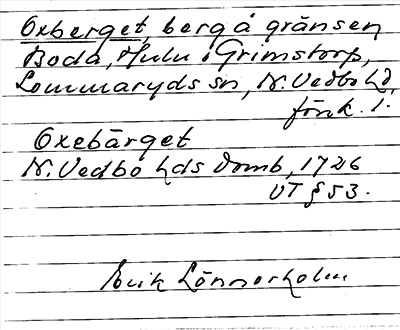 Oxberget, berg å gränsen
Boda, Hulu i Grimstorp,
Lommaryds sn, N. Vedbo hd,
förk. 1.
Oxebärget
N. Vedbo hds domb, 1726
VT § 53.
Erik Lönnerholm